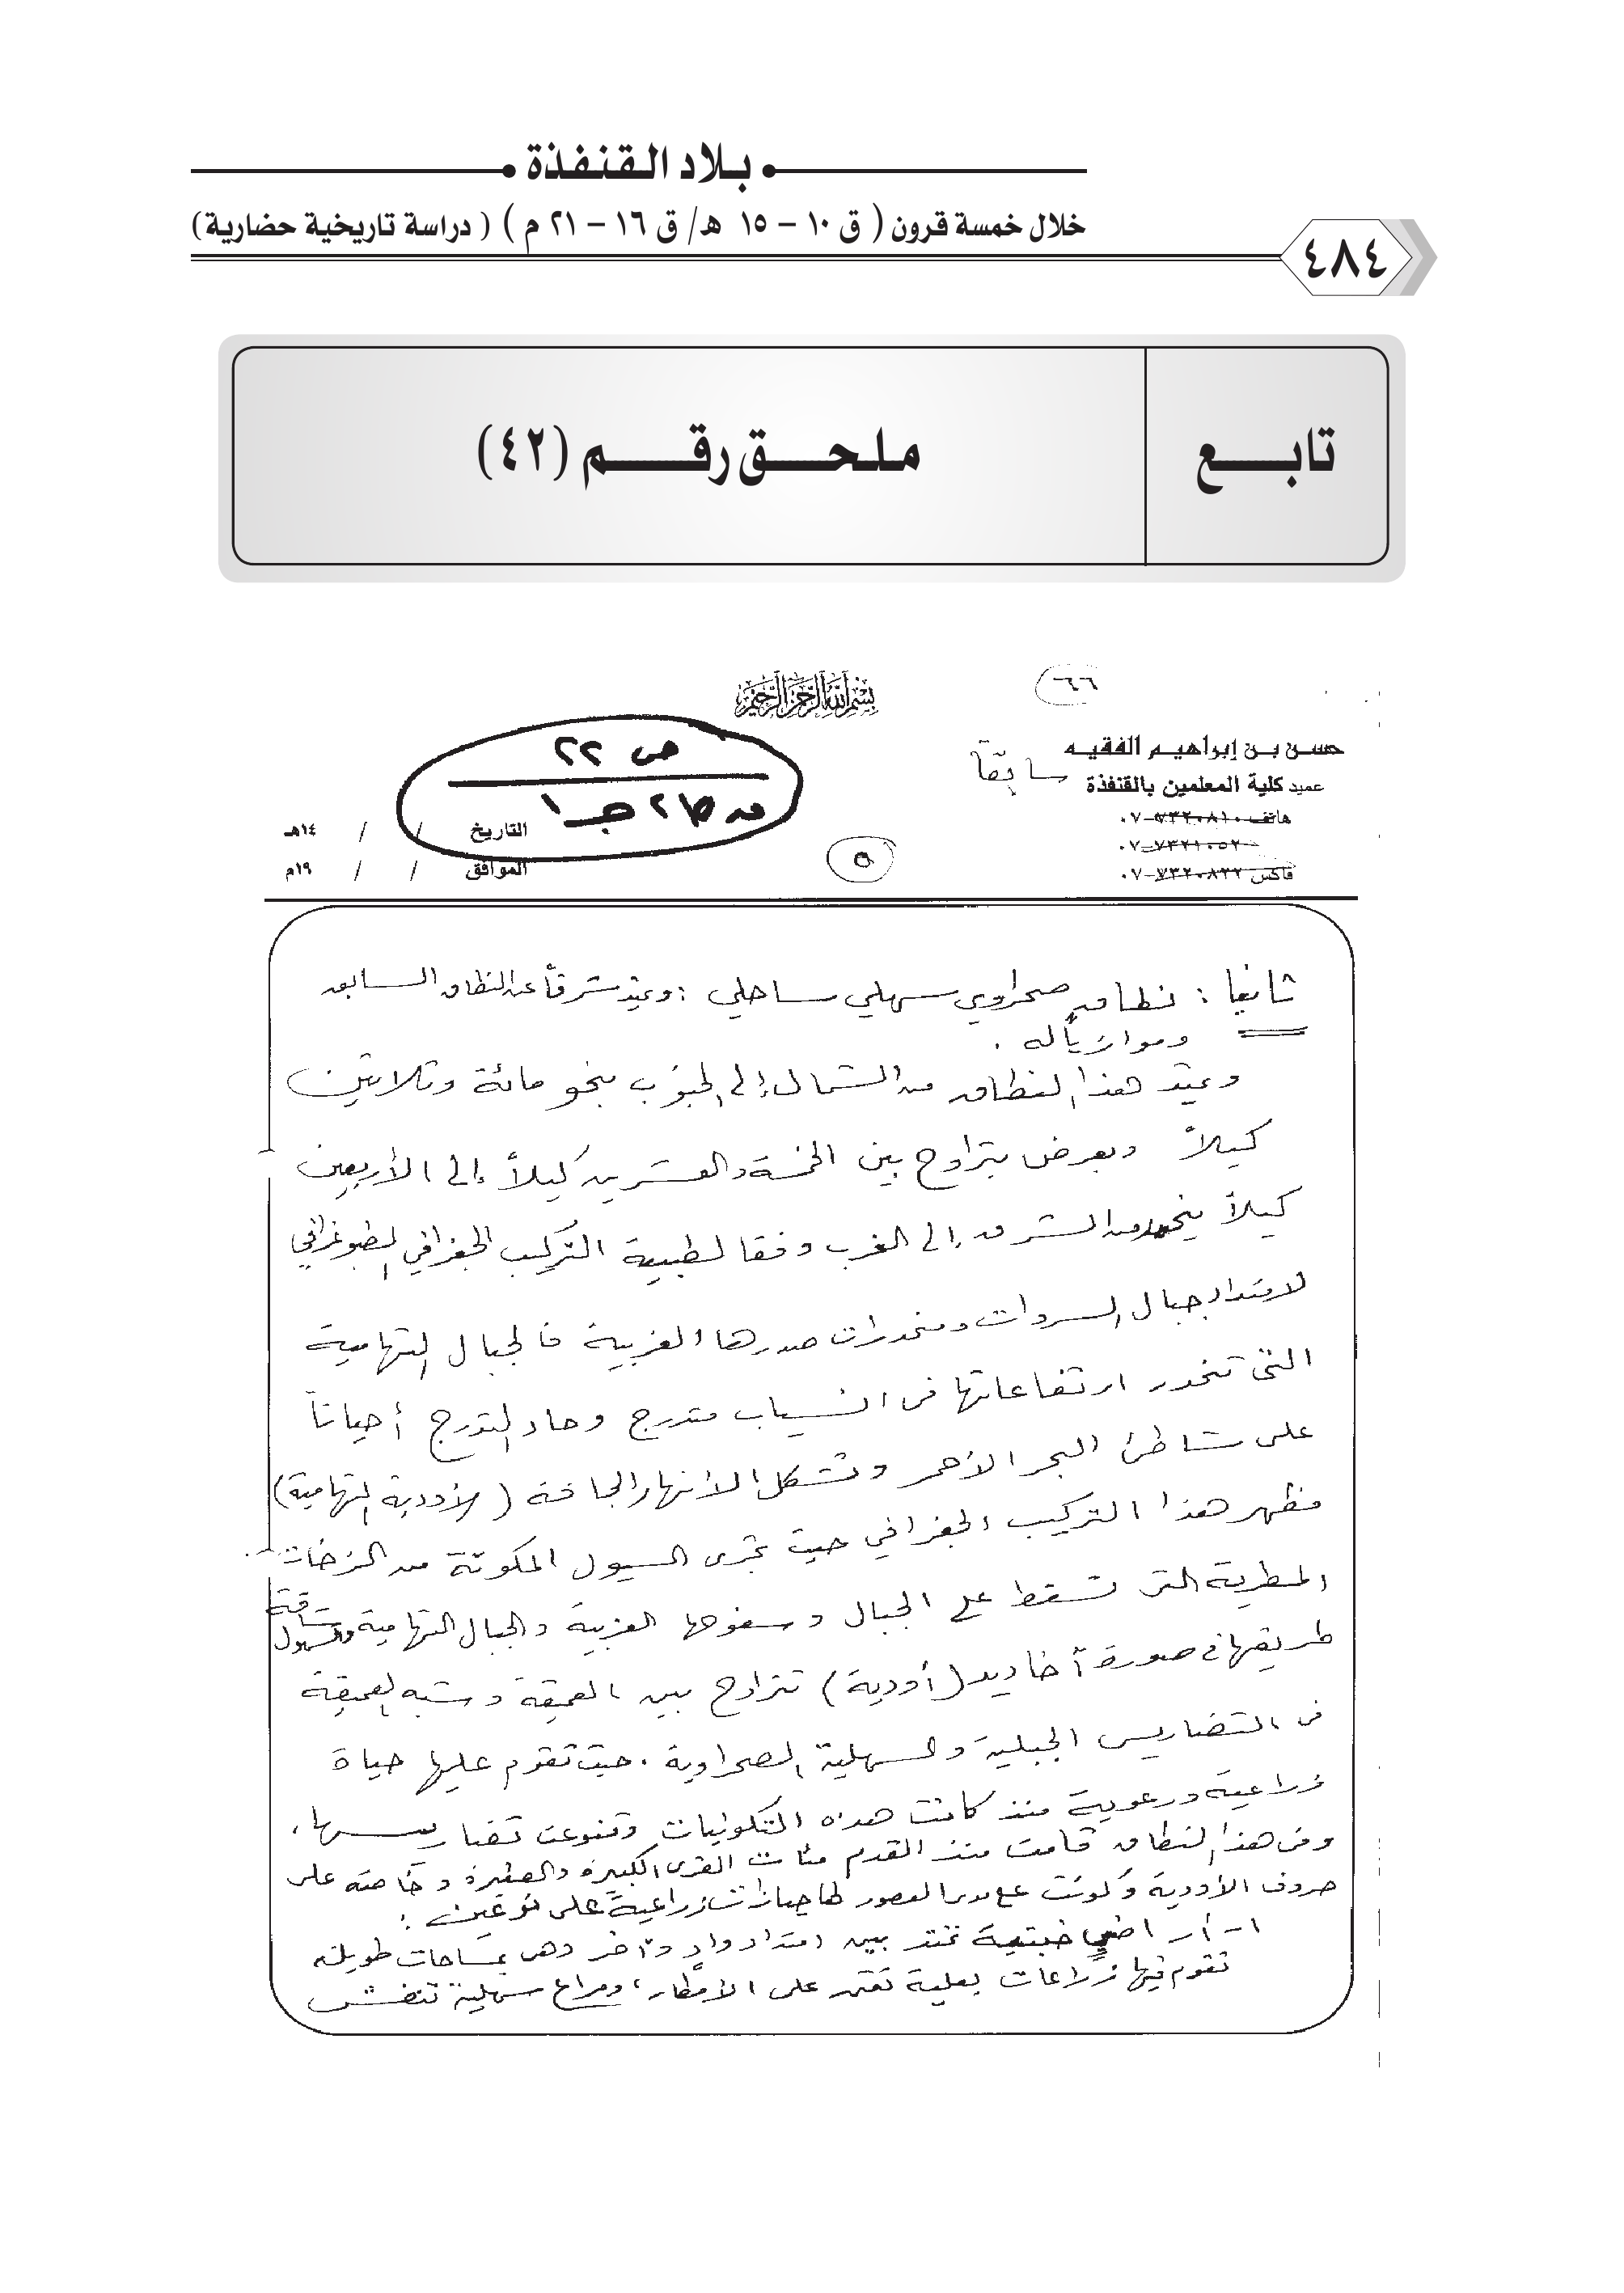 بلاد القنفذة
خلال خمسة قرون ( ق ١٠ – ١٥ هـ/ ق ١٦ – ٢١ م ) ( دراسة تاريخية حضارية)
٤٨٤
تابع
ملحق رقم (٤٢)
بسم الله الرحمن الرحيم
حسن بن إبراهيم الفقيه
عميد كلية المعلمين بالقنفذة سابقاً
هاتف ٧٣٢٠٨١٠-٠٧
٧٣٢١٠٥٢-٠٧
فاكس ٧٣٢٠٨٢٢-٠٧
ص ٢٢
جـ ١
التاريخ / / ١٤هـ
الموافق / / ١٩م
٥
ثانيا : نطاق صحراوي سهلي ساحلي : ويمتد شرقاً عن النطاق السابق
وموازياً له .
ويمتد هذا النطاق من الشمال إلى الجنوب بنحو مائة وثلاثين
كيلاً وبعرض يتراوح بين الخمسة والعشرين كيلاً إلى الأربعين
كيلاً من الشرق إلى الغرب وفقا لطبيعة التركيب الجغرافي الطبوغرافي
لامتداد جبال السروات ومنحدرات صدرها الغربية فالجبال التهامية
التي تنحدر ارتفاعاتها في انسياب متدرج وحاد التدرج أحياناً
على شاطئ البحر الأحمر وتشكل الأنهار الجافة ( الأودية التهامية)
مظهر هذا التركيب الجغرافي حيث تجري السيول المكونة من الزخات
المطرية التي تسقط على الجبال وسفوحها الغربية والجبال التهامية والسهول شاقة
طريقها في صورة أخاديد (أودية) تتراوح بين العميقة وشبه العميقة
في التضاريس الجبلية والسهلية الصحراوية . حيث تقوم عليها حياة
زراعية ورعوية منذ كانت هذه التكوينات وتنوعت تضاريسها .
وفي هذا النطاق قامت منذ القدم مئات القرى الكبيرة والصغيرة وخاصة على
حروف الأودية وكونت على مدى العصور لها حيازات زراعية على نوعين :
١ - أراضي خبتية تمتد بين امتداد وادٍ وآخر وهي بمساحات طويلة
تقوم فيها زراعات بعلية تعتمد على الأمطار ، ومراع سهلية